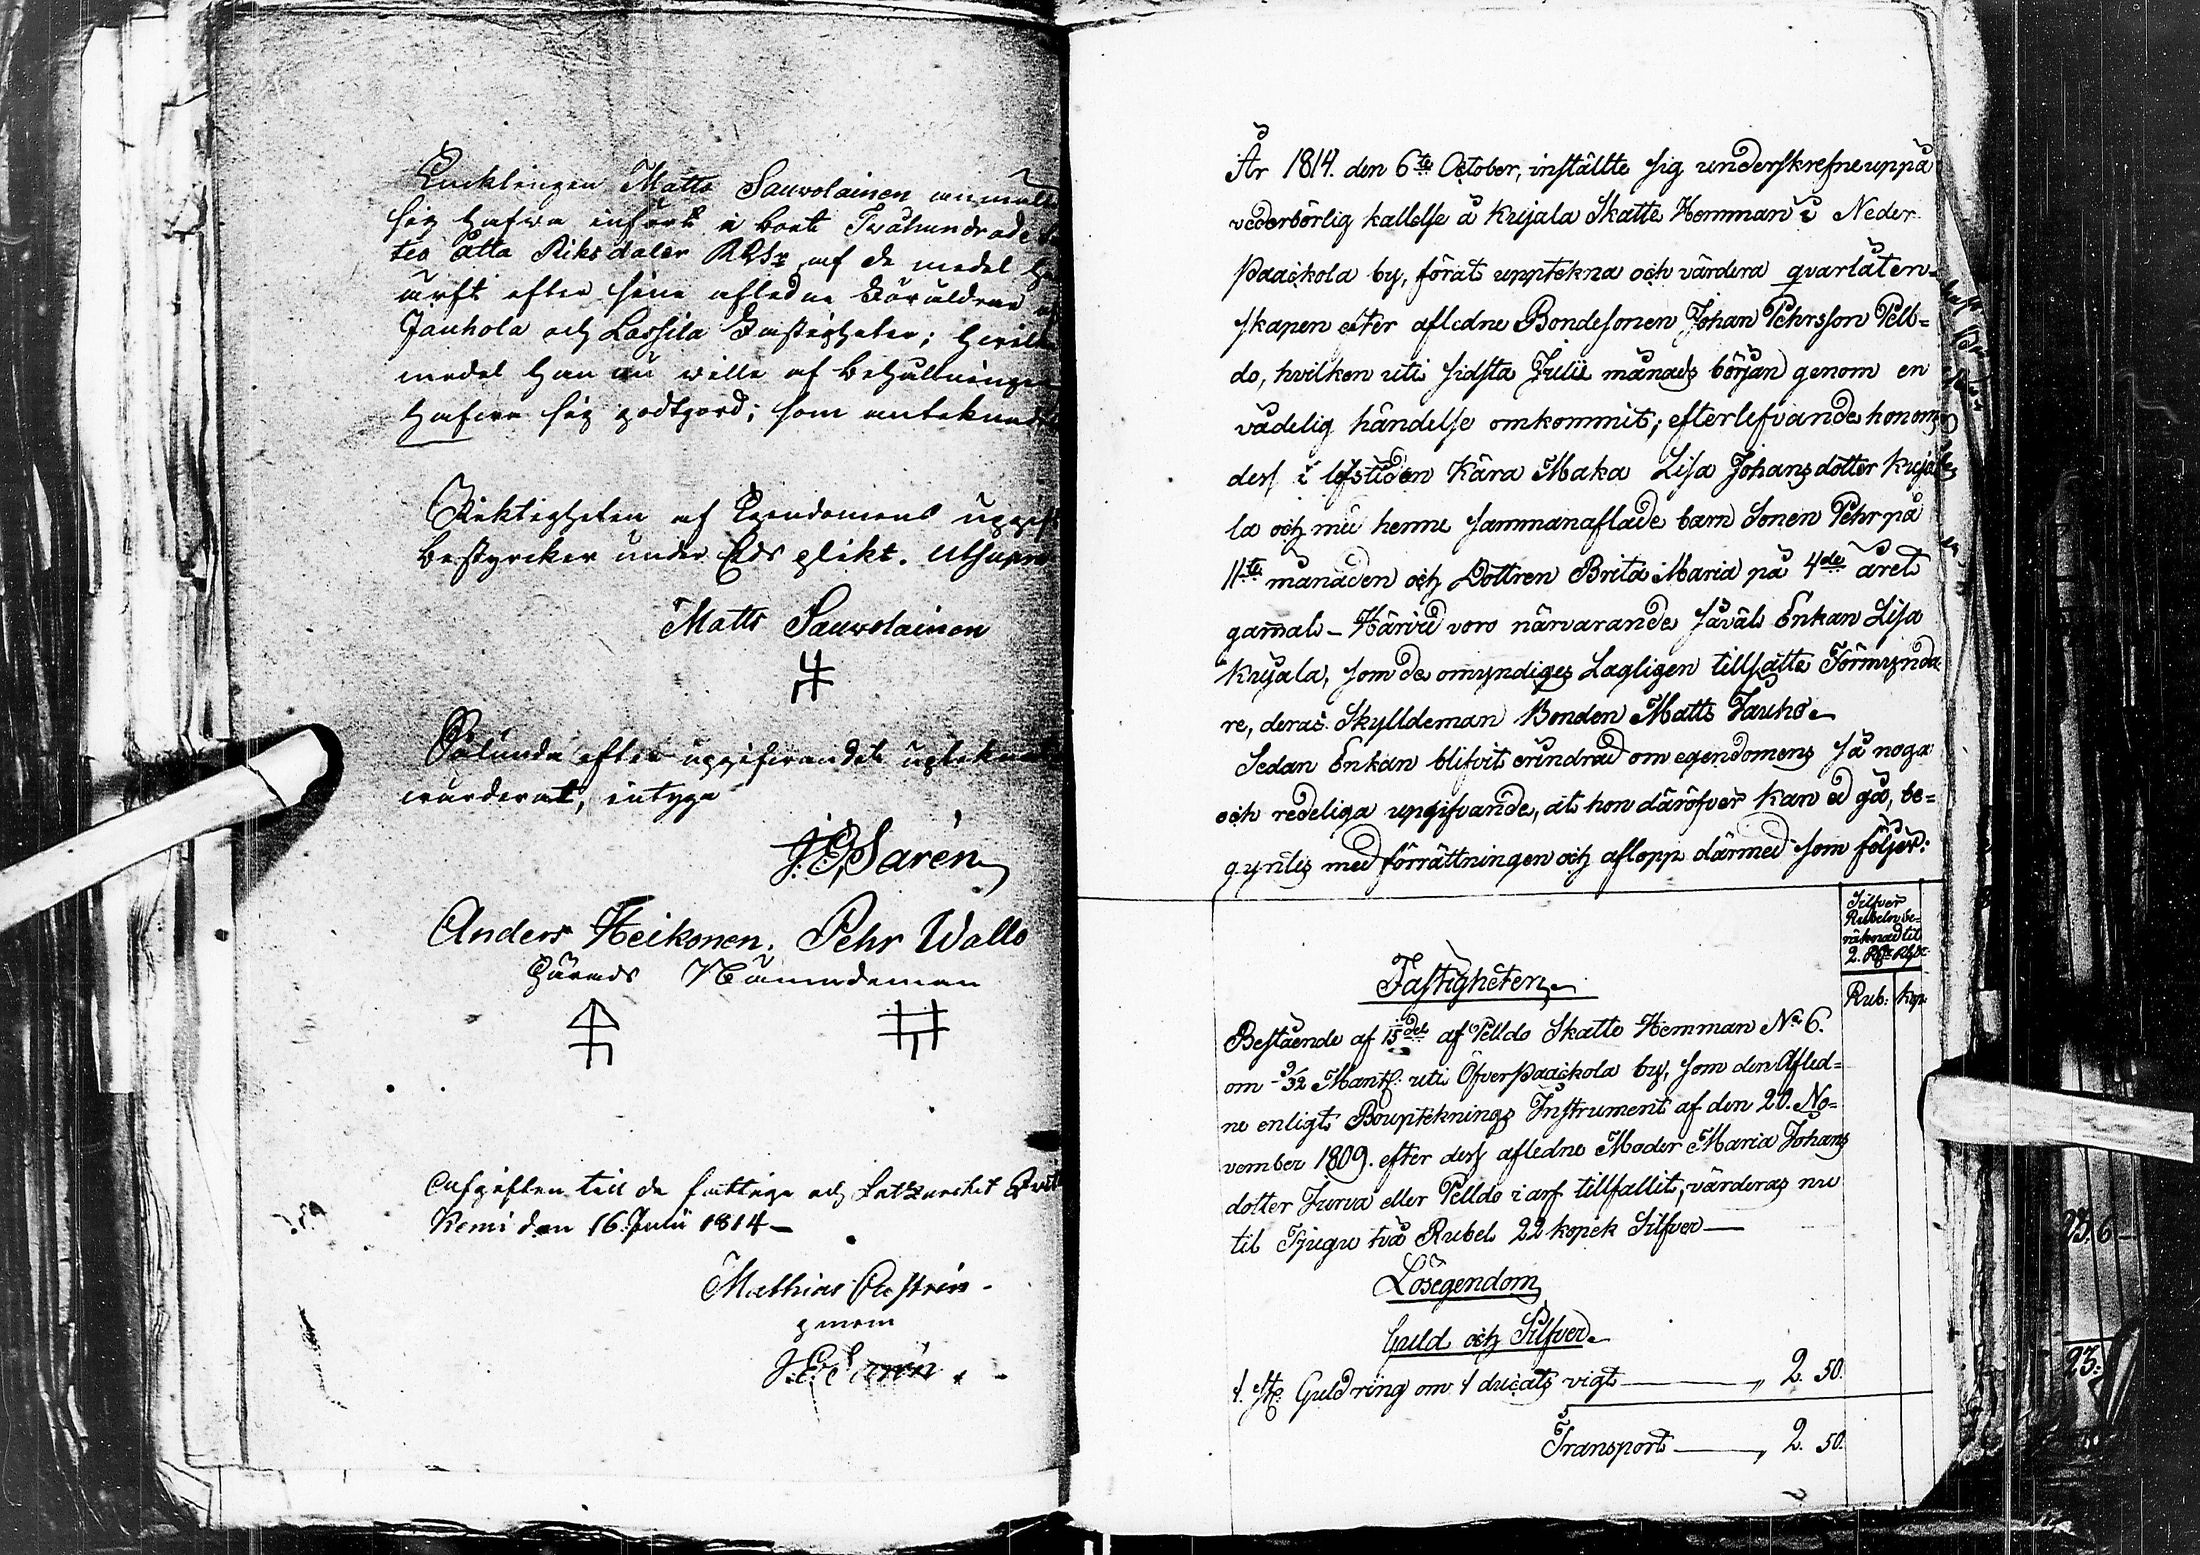 Encklingen Matts Sauvolainen anmälte
sig hafva infört i boet Tvåhundrade
tio åtta Riksdaler RGSr af de medel
ärft efter sine afledne Föräldrar
Jauhola och Lassila Fastigheter;
medel han nu wille af behållningen
hafwa sig godtgord; som antekna
Riktigheten af Egendomens uppgift
bestyrcker under Eds plikt. Utsupra
Matts Sauvolainen
Sålunda efter uppgifvandet uptekna
wärderat, intyga
J. E. Sarén
Anders Heikonen. Pehr Wallo
Härads Nämndeman
Cafgiften till de fattige och Latzarettet
Kemi den 16. Julii 1814 —
Mathias Castrén
genom
J. E. Sarén
År 1814. den 6te October, instälte sig underskrefne uppå
vederbörlig kallelse å Kujala Skatte Hemman i Neder
Paackola by, förat upptekna och värdera qvarlåten-
skapen efter afledne Bondesonen Johan Pehrsson Pell-
do, hvilken uti sidsta Julii månads början genom en
vådelig händelse omkommit; efterlefvande honom
dess i lifstiden Kära Maka Lisa Johansdotter Kuja
la och med henne sammanaflade barn Sonen Pehr på
11te månaden och Dottren Brita Maria på 4de året
gammal — Härvid voro närvarande såväl Enkan Lisa
Kujala, som de omyndiges Lagligen tillsatte Förmynda
re, deras Skylldeman Bonden Matts Jauho —
Sedan Enkan blifvit erindrad om egendomens så noga
och redeliga uppgifvande, at hon däröfver kan ed gå, be-
gyntes med förrättningen och aflopp därmed som följer:
Silfver
Rubeln be-
räknad til
2. Rd
Rub: Kop:
Fastigheten
Bestående af 15del af Pelldo Skatte Hemman No 6.
om 9/32 Mantl: uti Öfver Paackola by, som den Afled-
ne enligt Bouptecknings Instrument af den 20. No-
vember 1809. efter dess afledne Moder Maria Johans
dotter Jurva eller Pelldo i arf tillfallit, värderas nu
til Tjugu två Rubel 22 kopek Silfver —
Lösegendom
Guld och Silfver
1. st: Guldring om 1 ducats vigt — „ 2. 50.
Transport — „ 2. 50.
23. 6 —
23: